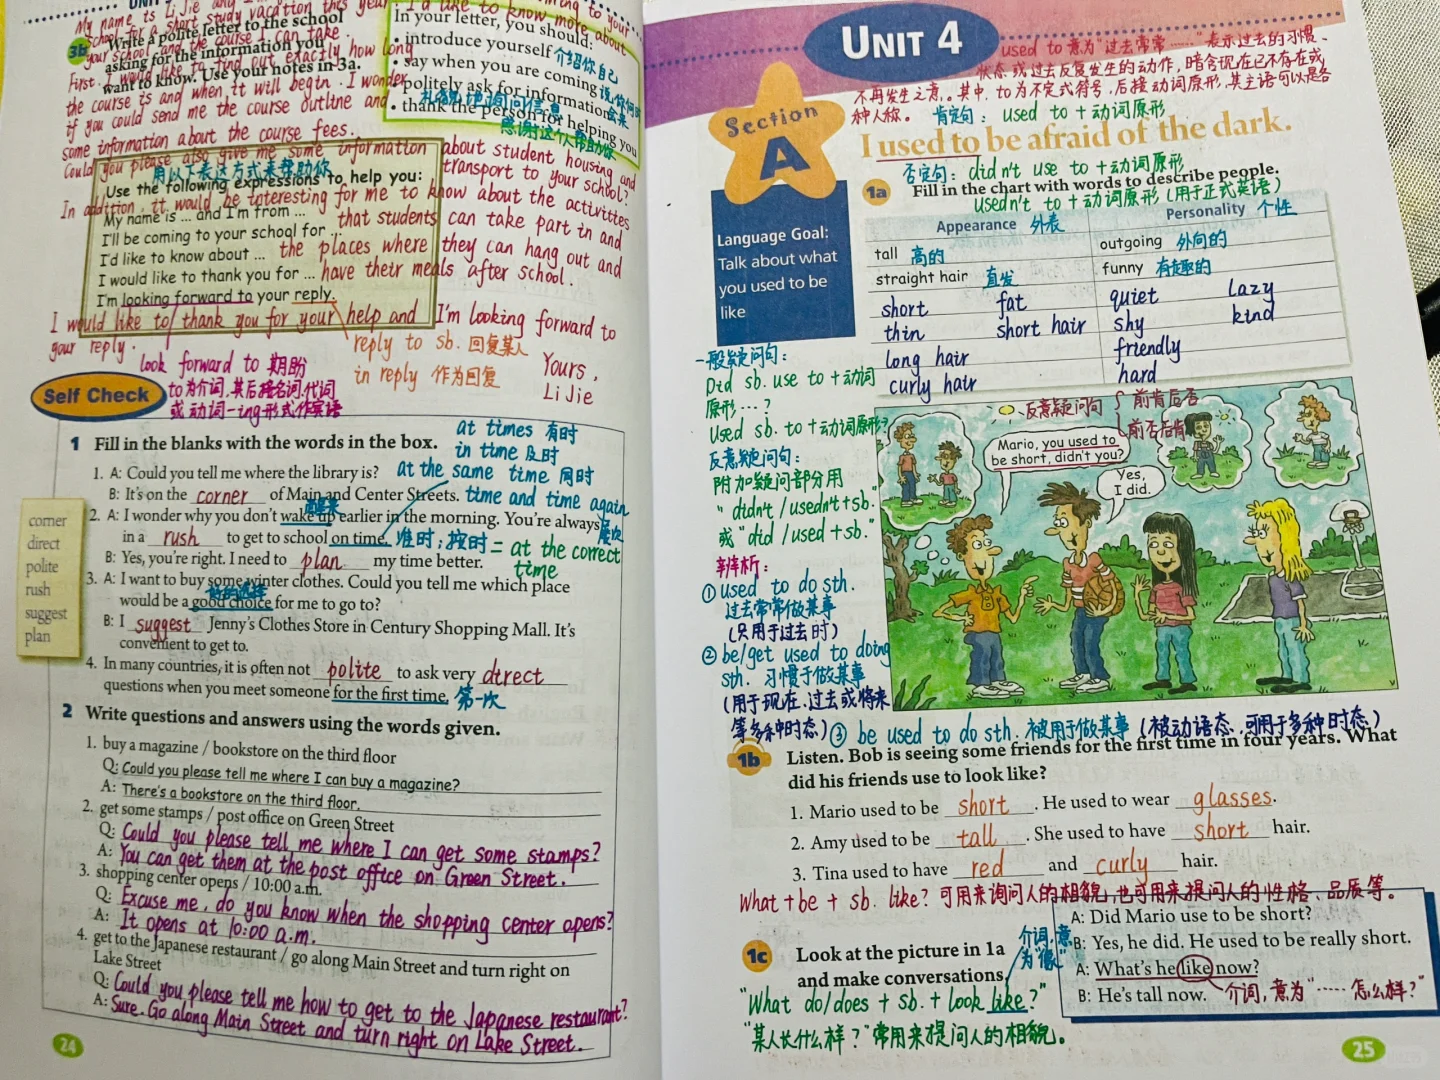 UNIT
3b Write a polite letter to the school
asking for the information you
want to know. Use your notes in 3a.
My name is Li Jie and
school for a short study vacation this year. I'd like to know more about
your school and the course I can take.
First, I would like to find out exactly how long
the course is and when it will begin. I wonder
if you could send me the course outline and
some information about the course fees.
Could you please also give me some information about student housing and
transport to your school?
In addition, it would be interesting for me to know about the activities
that students can take part in and
the places where they can hang out and
have their meals after school.
I would like to thank you for your help and I'm looking forward to
your reply.
Yours,
Li Jie
In your letter, you should:
• introduce yourself 介绍你自己
• say when you are coming 说你何时来
• politely ask for information
礼貌地询问信息
• thank the person for helping you
感谢这个人帮助你
用以下表达方式来帮助你
Use the following expressions to help you:
My name is ... and I'm from ...
I'll be coming to your school for ...
I'd like to know about ...
I would like to thank you for ...
I'm looking forward to your reply.
reply to sb. 回复某人
in reply 作为回复
look forward to 期盼
to为介词,其后接名词、代词
或动词-ing形式作宾语
Self Check
1 Fill in the blanks with the words in the box.
at times 有时
in time 及时
at the same time 同时
time and time again
屡次
corner
direct
polite
rush
suggest
plan
1. A: Could you tell me where the library is?
B: It's on the corner of Main and Center Streets.
2. A: I wonder why you don't wake up earlier in the morning. You're always
in a rush to get to school on time. 准时;按时 = at the correct
time
B: Yes, you're right. I need to plan my time better.
3. A: I want to buy some winter clothes. Could you tell me which place
好的选择
would be a good choice for me to go to?
B: I suggest Jenny's Clothes Store in Century Shopping Mall. It's
convenient to get to.
4. In many countries, it is often not polite to ask very direct
questions when you meet someone for the first time. 第一次
2 Write questions and answers using the words given.
1. buy a magazine / bookstore on the third floor
Q: Could you please tell me where I can buy a magazine?
A: There's a bookstore on the third floor.
2. get some stamps / post office on Green Street
Q: Could you please tell me where I can get some stamps?
A: You can get them at the post office on Green Street.
3. shopping center opens / 10:00 a.m.
Q: Excuse me, do you know when the shopping center opens?
A: It opens at 10:00 a.m.
4. get to the Japanese restaurant / go along Main Street and turn right on
Lake Street
Q: Could you please tell me how to get to the Japanese restaurant?
A: Sure. Go along Main Street and turn right on Lake Street.
24
UNIT 4
used to 意为"过去常常……"表示过去的习惯、
状态或过去反复发生的动作,暗含现在已不存在或
不再发生之意。其中,to为不定式符号,后接动词原形,其主语可以是各
种人称。 肯定句:used to + 动词原形
Section
A
I used to be afraid of the dark.
否定句:didn't use to + 动词原形
usedn't to + 动词原形(用于正式英语)
1a Fill in the chart with words to describe people.
Language Goal:
Talk about what
you used to be
like
Appearance 外表 Personality 个性
tall 高的 outgoing 外向的
straight hair 直发 funny 有趣的
short fat quiet lazy
thin short hair shy kind
long hair friendly
curly hair hard
一般疑问句:
Did sb. use to + 动词
原形…?
Used sb. to + 动词原形?
反意疑问句:
附加疑问部分用
"didn't / usedn't + sb."
或"did / used + sb."
辨析:
① used to do sth.
过去常常做某事
(只用于过去时)
② be/get used to doing
sth. 习惯于做某事
(用于现在、过去或将来
等多种时态) ③ be used to do sth. 被用于做某事(被动语态,可用于多种时态)
反意疑问句 { 前肯后否
前否后肯
Mario, you used to
be short, didn't you?
Yes,
I did.
1b Listen. Bob is seeing some friends for the first time in four years. What
did his friends use to look like?
1. Mario used to be short. He used to wear glasses.
2. Amy used to be tall. She used to have short hair.
3. Tina used to have red and curly hair.
What + be + sb. like? 可用来询问人的相貌,也可用来提问人的性格、品质等。
1c Look at the picture in 1a
and make conversations.
介词,意
为"像"
"What do/does + sb. + look like?"
"某人长什么样?"常用来提问人的相貌。
A: Did Mario use to be short?
B: Yes, he did. He used to be really short.
A: What's he like now?
B: He's tall now. 介词,意为"……怎么样?"
25